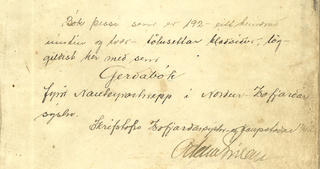 Bók þessi sem er 192 - eitt hundrað
níutíu og tvær - tölusettar blaðsíður, lög-
gildist hér með sem
Gerðabók
fyrir Nauteyrarhrepp í Norður-Ísafjarðar
sýslu.
Skrifstofu Ísafjarðarsýslu og kaupstaðar